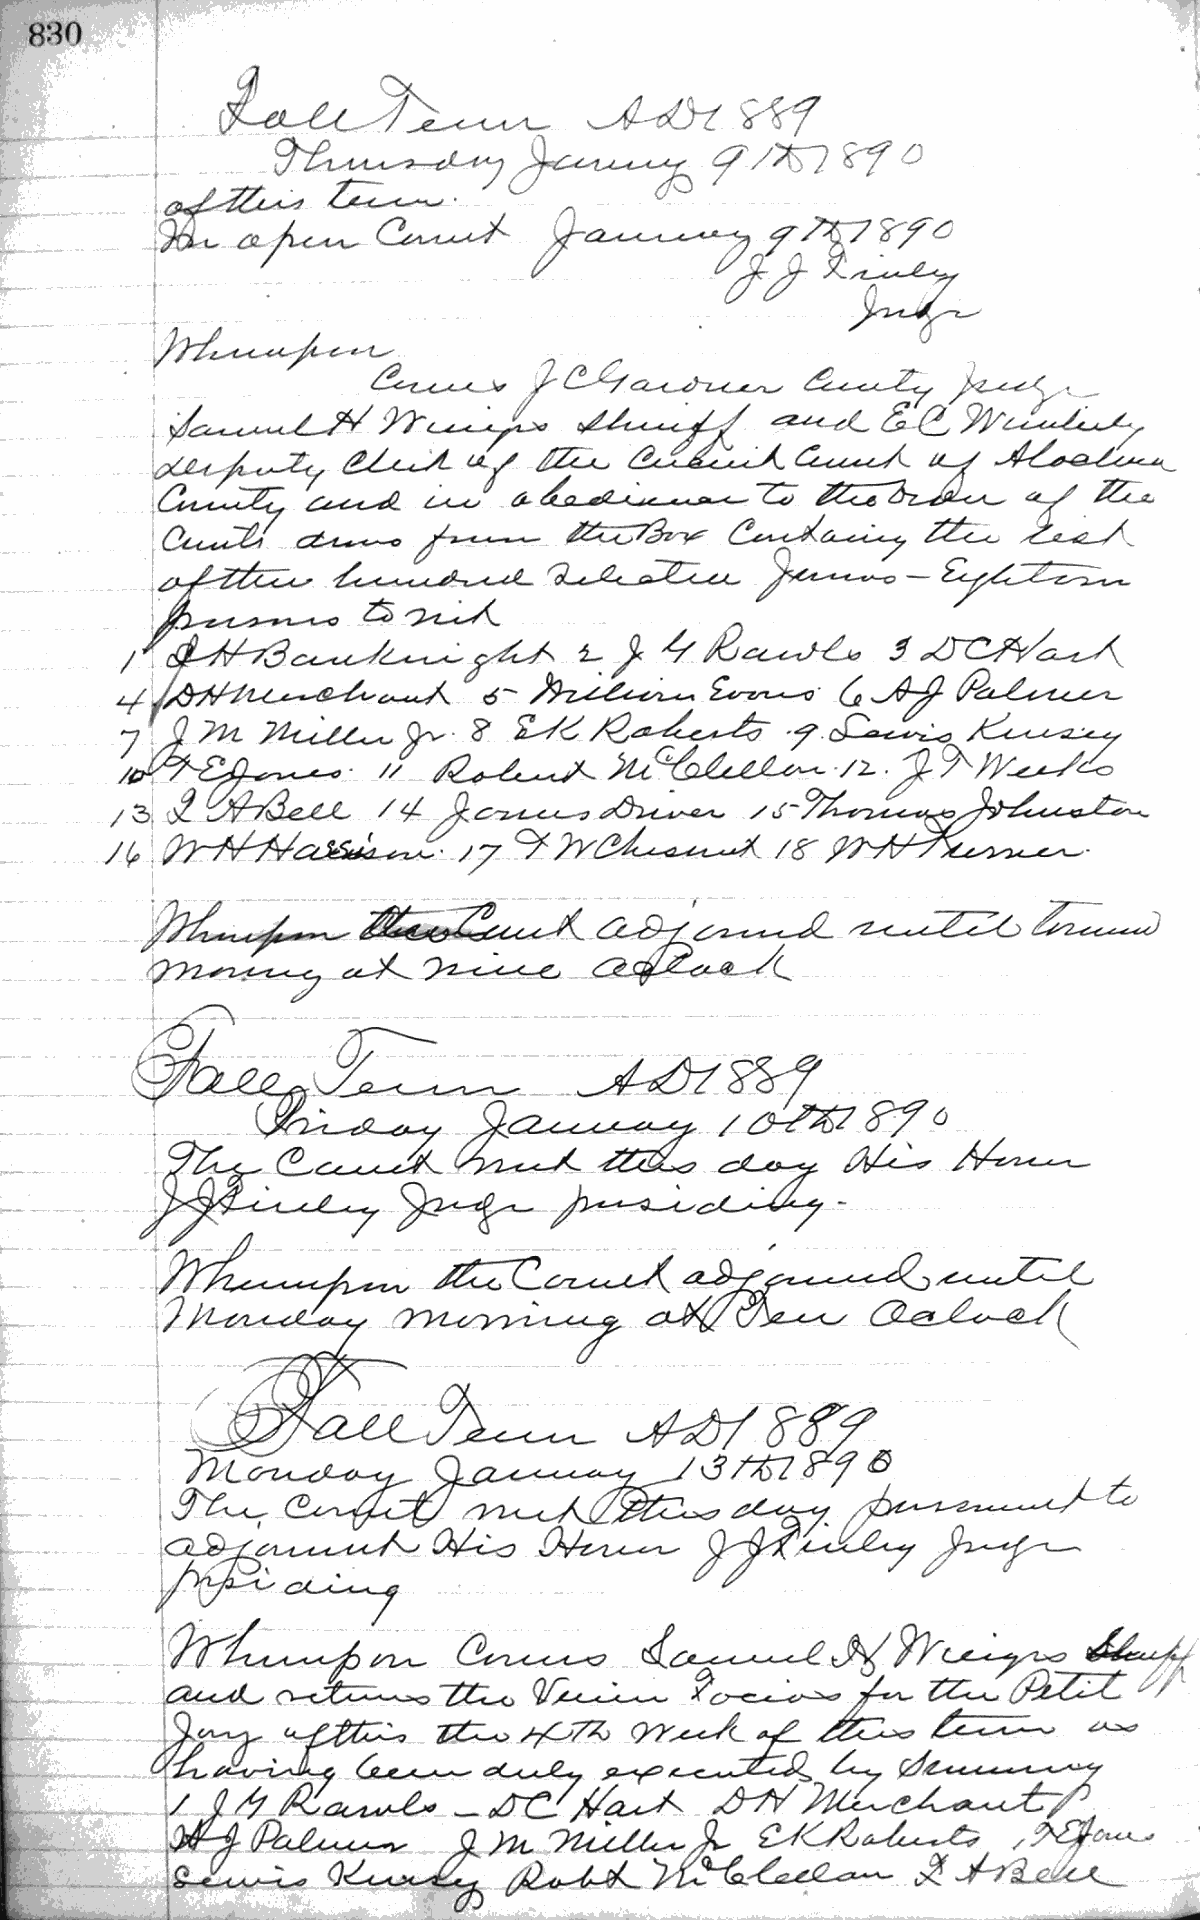 830
Fall Term AD 1889
Thursday January 9th 1890
of this term.
In open Court January 9th 1890
J J Finley
Judge
Whereupon
Comes J C Gardner County Judge
Samuel H Wienges Sheriff and E C Wimberly
deputy Clerk of the Circuit Court of Alachua
County and in obedience to the Order of the
Court draws from the Box Containing the list
of three hundred selected Jurors - Eighteen
persons to wit
1 J H Bauknight 2 J G Rawls 3 D C Hart
4 D H Merchant 5 William Evans 6 A J Palmer
7 J M Miller Jr. 8 E K Roberts 9 Lewis Kinsey
10 T E Jones 11 Robert McClellan 12. J T Weeks
13 F A Bell 14 James Driver 15 Thomas Johnston
16 W H Harrison 17 T W Chesnut 18 W H Turner.
Whereupon the Court adjorned until tomorrow
morning at nine oclock
Fall Term AD 1889
Friday January 10th 1890
The Court met this day His Honor
J J Finley Judge presiding.
Whereupon the Court adjorned until
Monday morning at Ten Oclock
Fall Term AD 1889
Monday January 13th 1890
The Court met this day pursuant to
adjornment His Honor J J Finley Judge
presiding
Whereupon Comes Samuel H Wienges Sheriff
and returns the Venire Facias for the Petit
Jury of this the 4th Week of this term as
having been duly executed by Summoning
1 J G Rawls - D C Hart D H Merchant
A J Palmer J M Miller Jr E K Roberts, T E Jones
Lewis Kinsey Robt McClellan F A Bell